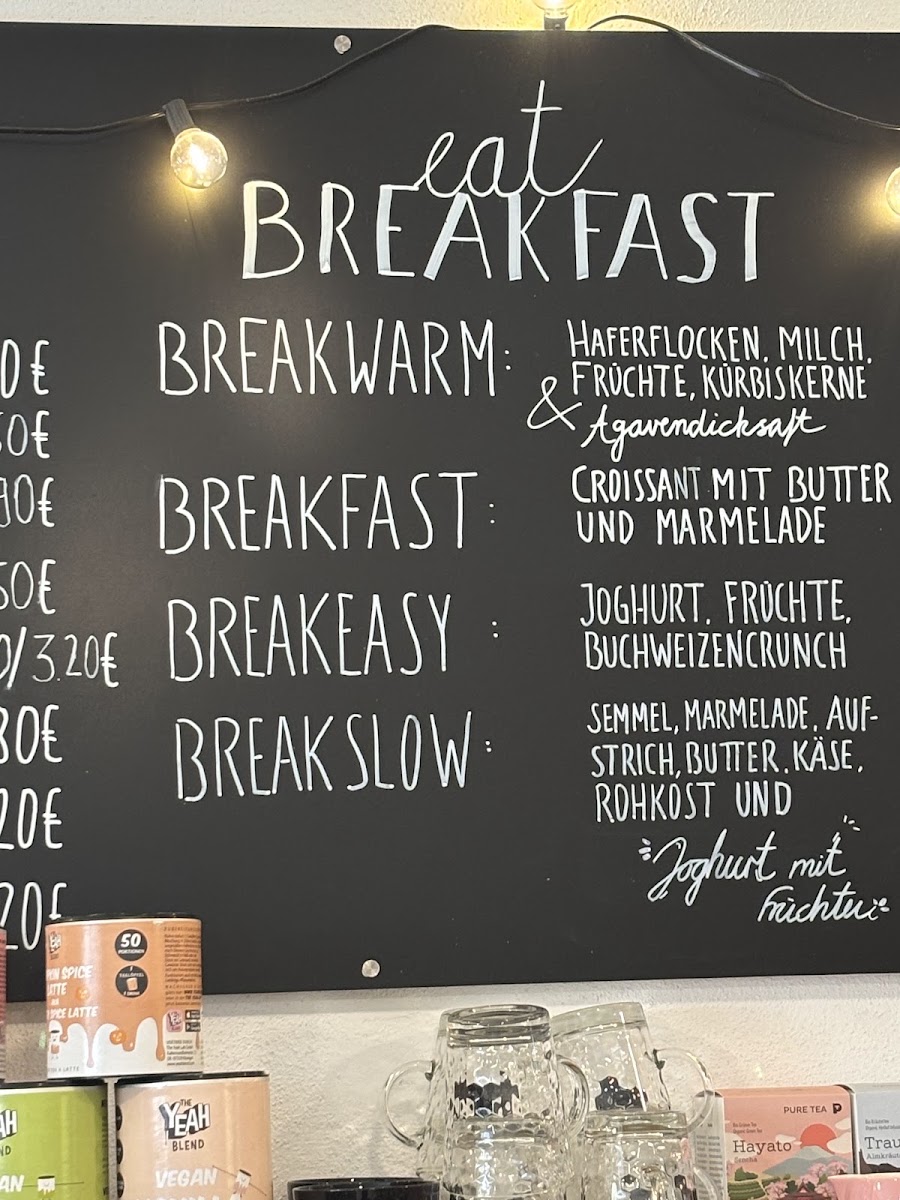 eat
BREAKFAST
BREAKWARM:
HAFERFLOCKEN, MILCH,
FRÜCHTE, KÜRBISKERNE
& Agavendicksaft
BREAKFAST:
CROISSANT MIT BUTTER
UND MARMELADE
BREAKEASY:
JOGHURT, FRÜCHTE,
BUCHWEIZENCRUNCH
BREAKSLOW:
SEMMEL, MARMELADE, AUF-
STRICH, BUTTER, KÄSE,
ROHKOST UND
Joghurt mit
Früchten
0€
50€
90€
50€
0/3.20€
80€
20€
20€
50
PORTIONEN
SPICE
LATTE
SPICE LATTE
THE
YEAH
BLEND
VEGAN
PURE TEA
Hayato
Sencha
Trau
Almkräut